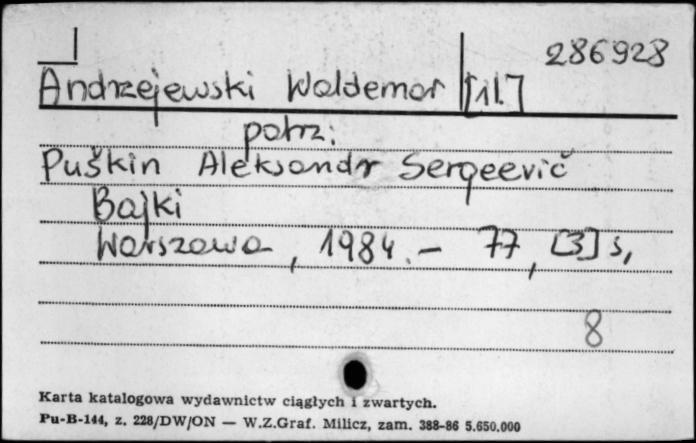 286928
Andrzejewski Waldemar [il.]
patrz:
Puškin Aleksandr Sergeevič
Bajki
Warszawa, 1984.- 77, [3] s,
8
Karta katalogowa wydawnictw ciągłych i zwartych.
Pu-B-144, z. 228/DW/ON — W.Z.Graf. Milicz, zam. 388-86 5.650.000